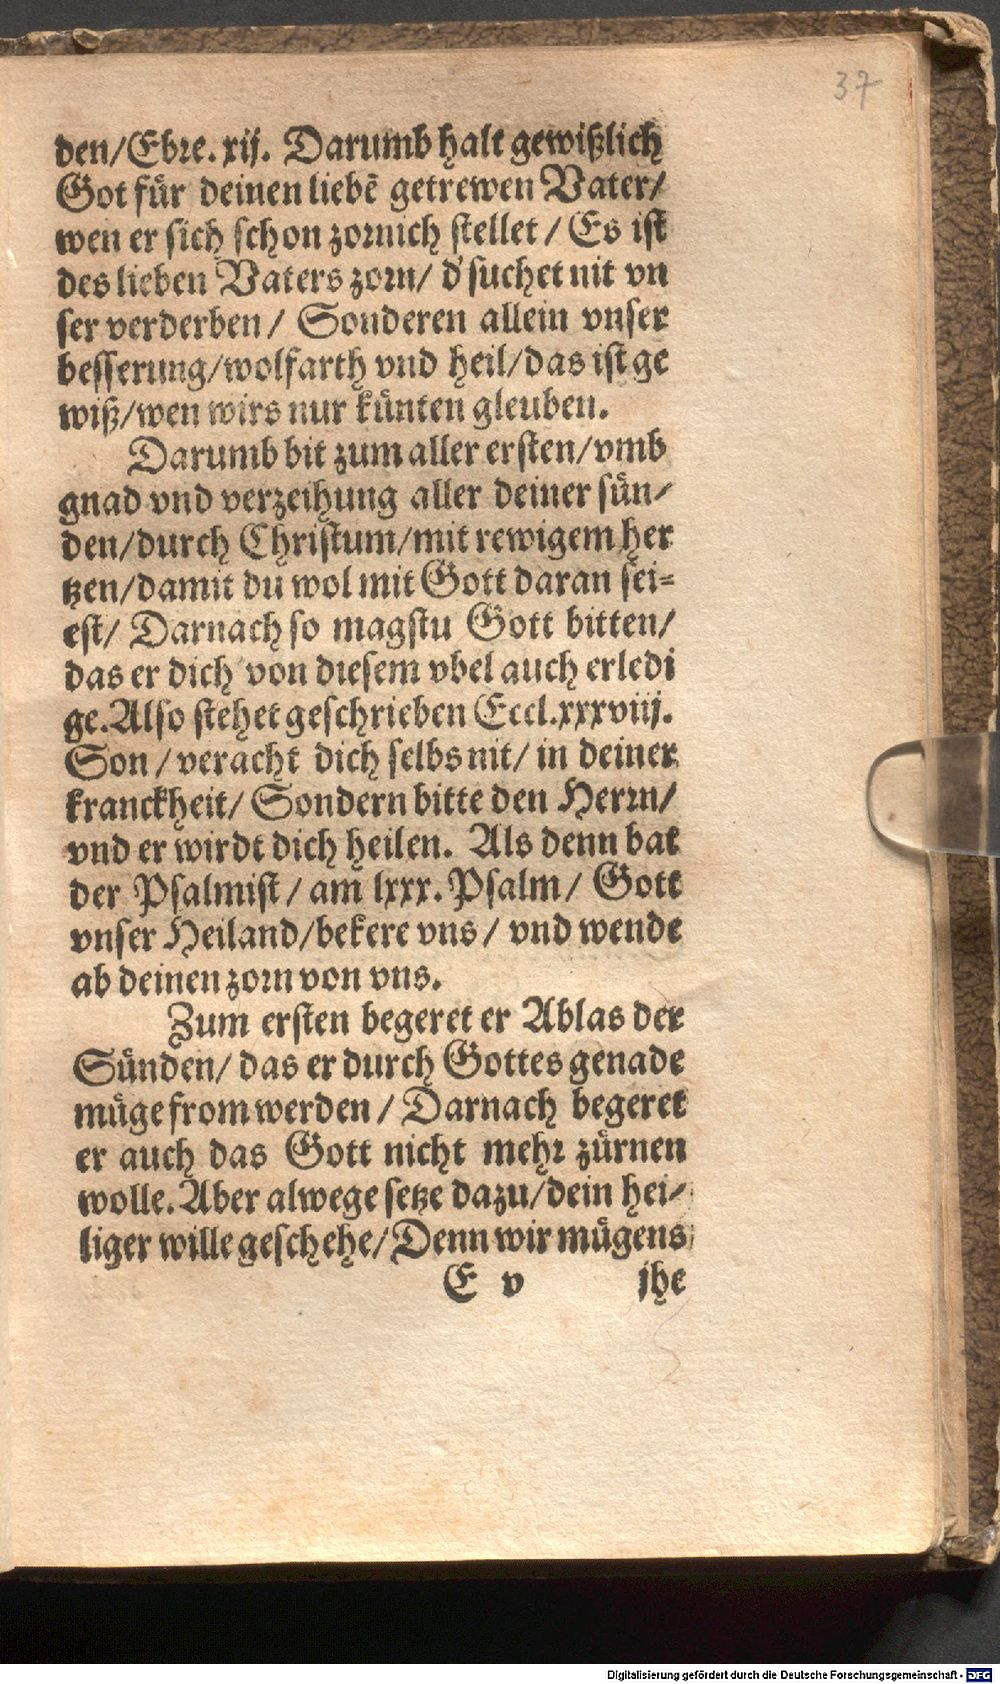 37
den/Ebre. xij. Darumb halt gewißlich
Got für deinen liebē getrewen Vater/
wen er sich schon zornich stellet / Es ist
des lieben Vaters zorn/ d' suchet nit vn
ser verderben/ Sonderen allein vnser
besserung/wolfarth vnd heil/das ist ge
wiß/wen wirs nur künten gleuben.
Darumb bit zum aller ersten/vmb
gnad vnd verzeihung aller deiner sün/
den/durch Christum/mit rewigem her
tzen/damit du wol mit Gott daran sei=
est/ Darnach so magstu Gott bitten/
das er dich von diesem vbel auch erledi
ge. Also stehet geschrieben Eccl.xxxviij.
Son / veracht dich selbs nit/ in deiner
kranckheit/ Sondern bitte den Herrn/
vnd er wirdt dich heilen. Als denn bat
der Psalmist / am lxxx. Psalm/ Gott
vnser Heiland/bekere vns / vnd wende
ab deinen zorn von vns.
Zum ersten begeret er Ablas der
Sünden/ das er durch Gottes genade
müge from werden / Darnach begeret
er auch das Gott nicht mehr zürnen
wolle. Aber alwege setze dazu/dein hei/
liger wille geschehe/ Denn wir mügens
E v jhe
Digitalisierung gefördert durch die Deutsche Forschungsgemeinschaft - DFG